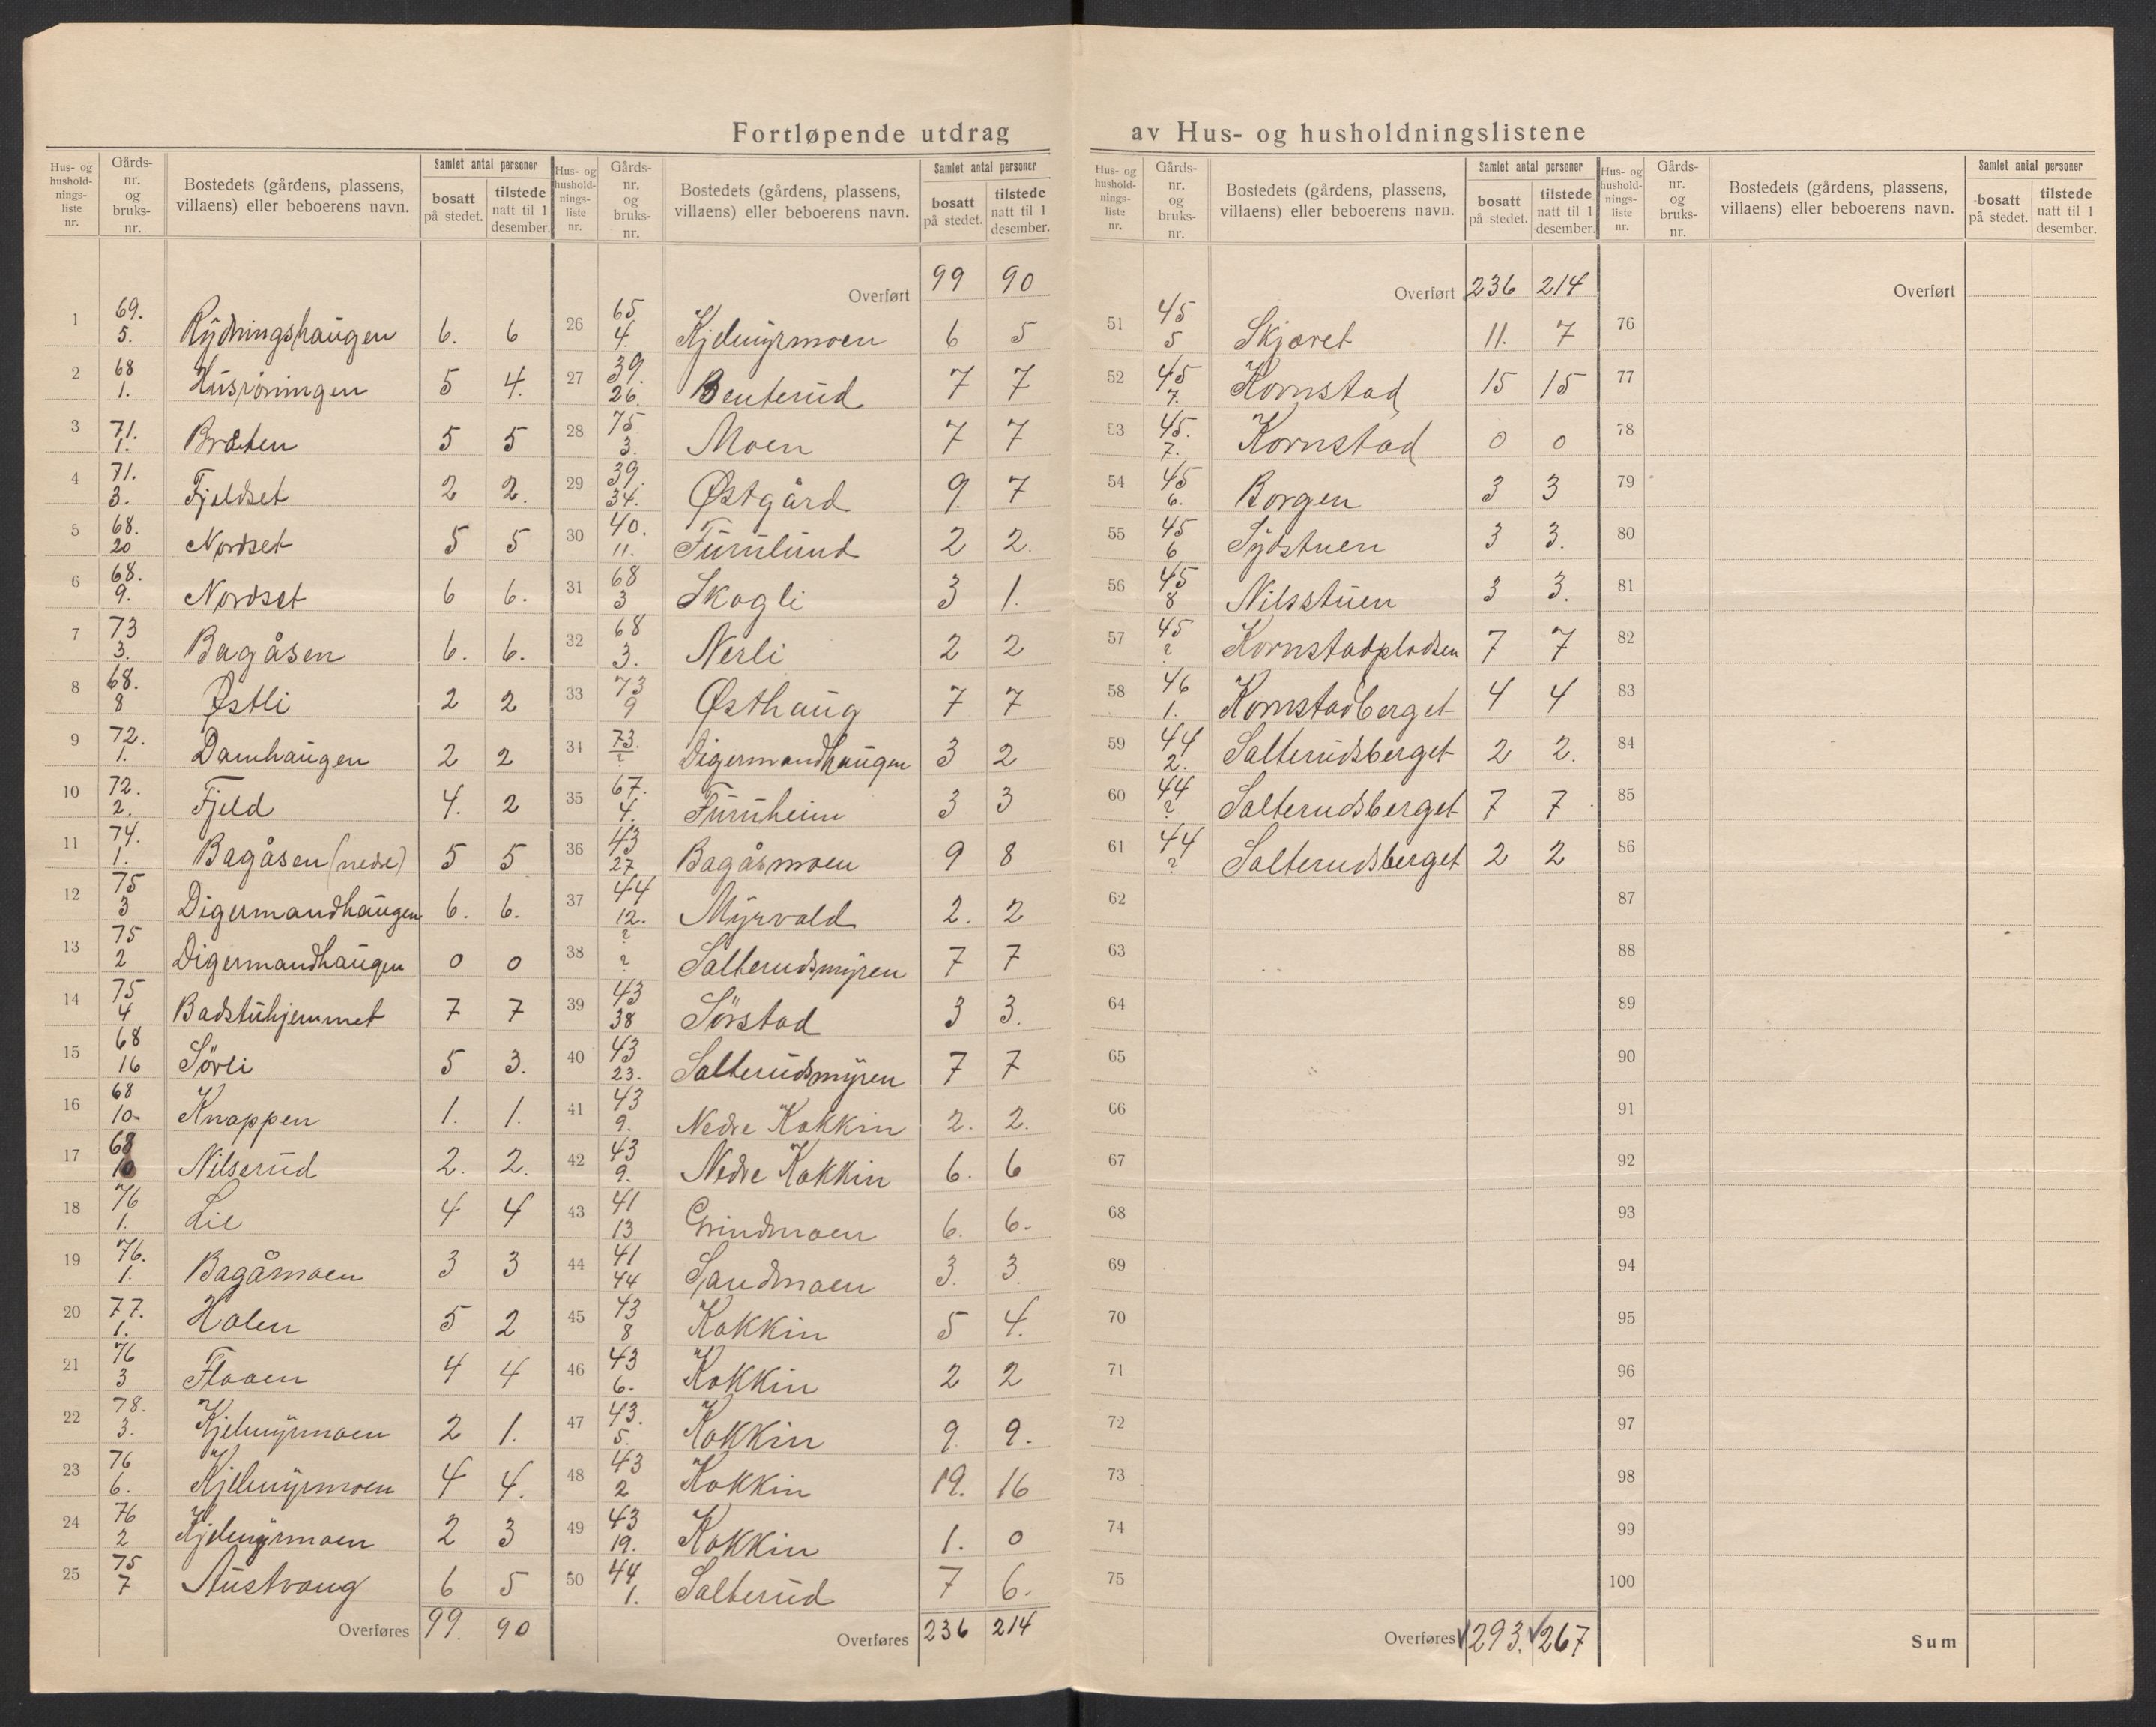 Fortløpende utdrag av Hus- og husholdningslistene
Hus- og husholdnings-liste nr. | Gårds-nr. og bruks-nr. | Bostedets (gårdens, plassens, villaens) eller beboerens navn. | Samlet antal personer | bosatt på stedet. | tilstede natt til 1 desember.
1 69. 5. Rydningshaugen 6. 6
2 68 1. Husröningen 5 4.
3 71. 1. Bråten 5 5
4 71. 3. Fjeldset 2 2.
5 68. 20 Nordset 5 5
6 68. 9. Nordset 6 6.
7 73 3. Bagåsen 6. 6.
8 68. 8 Østli 2 2
9 72. 1. Damhaugen 2 2
10 72. 2. Fjeld 4. 2
11 74. 1. Bagåsen (nedre) 5 5
12 75 3 Digermandhaugen 6. 6.
13 75 2 Digermandhaugen 0 0
14 75 4 Badstuhjemmet 7 7
15 68 16 Sörli 5 3.
16 68 10- Knappen 1. 1.
17 68 10 Nilserud 2. 2.
18 76 1. Lie 4 4
19 76. 1. Bagåmoen 3 3
20 77. 1. Holen 5 2
21 76 3 Floen 4 4
22 78. 3. Kjelmyrmoen 2 1.
23 76 6. Kjelmyrmoen 4 4.
24 76 2 Kjelmyrmoen 2 3
25 75 7 Austvang 6 5
Overføres 99. 90
Hus- og husholdnings-liste nr. | Gårds-nr. og bruks-nr. | Bostedets (gårdens, plassens, villaens) eller beboerens navn. | Samlet antal personer | bosatt på stedet. | tilstede natt til 1 desember.
Overført 99 90
26 65 4. Kjelmyrmoen 6 5
27 39. 26. Benterud 7 7
28 75 3. Moen 7 7
29 39. 34. Østgård 9. 7
30 40. 11. Furulund 2 2.
31 68 3 Skogli 3 1.
32 68 3. Nerli 2 2
33 73 9 Østhaug 7 7
34 73. ? Digermandhaugen 3 2
35 67. 4. Furuheim 3 3
36 43 27 Bagåsmoen 9 8
37 44 12. Myrvold 2. 2
38 ? ? Salterudsmyren 7 7
39 43 38 Sörstad 3 3.
40 43 23. Salterudsmyren 7 7
41 43 9. Nedre Kokkin 2. 2.
42 43 9. Nedre Kokkin 6. 6
43 41 13 Grindmoen 6. 6.
44 41 44 Sandmoen 3. 3
45 43 8 Kokkin 5 4.
46 43 6. Kokkin 2 2
47 43. 5. Kokkin 9. 9.
48 43 2 Kokkin 19. 16
49 43 19. Kokkin 1. 0
50 44 1. Salterud 7 6.
Overføres 236 214
Hus- og husholdnings-liste nr. | Gårds-nr. og bruks-nr. | Bostedets (gårdens, plassens, villaens) eller beboerens navn. | Samlet antal personer | bosatt på stedet. | tilstede natt til 1 desember.
Overført 236 214
51 45 5 Skjæret 11. 7
52 45 7. Kornstad 15 15
53 45. 7. Kornstad 0 0
54 45 6. Borgen 3 3
55 45 6 Sydstuen 3 3.
56 45 8 Nilsstuen 3 3.
57 45 ? Kornstadpladsen 7 7
58 46 1. Kornstadberget 4 4
59 44 2. Salterudsberget 2 2.
60 44 ? Salterudsberget 7 7
61 44 ? Salterudsberget 2 2
62
63
64
65
66
67
68
69
70
71
72
73
74
75
Overføres 293. 267
Hus- og husholdnings-liste nr. | Gårds-nr. og bruks-nr. | Bostedets (gårdens, plassens, villaens) eller beboerens navn. | Samlet antal personer | bosatt på stedet. | tilstede natt til 1 desember.
Overført
76
77
78
79
80
81
82
83
84
85
86
87
88
89
90
91
92
93
94
95
96
97
98
99
100
Sum